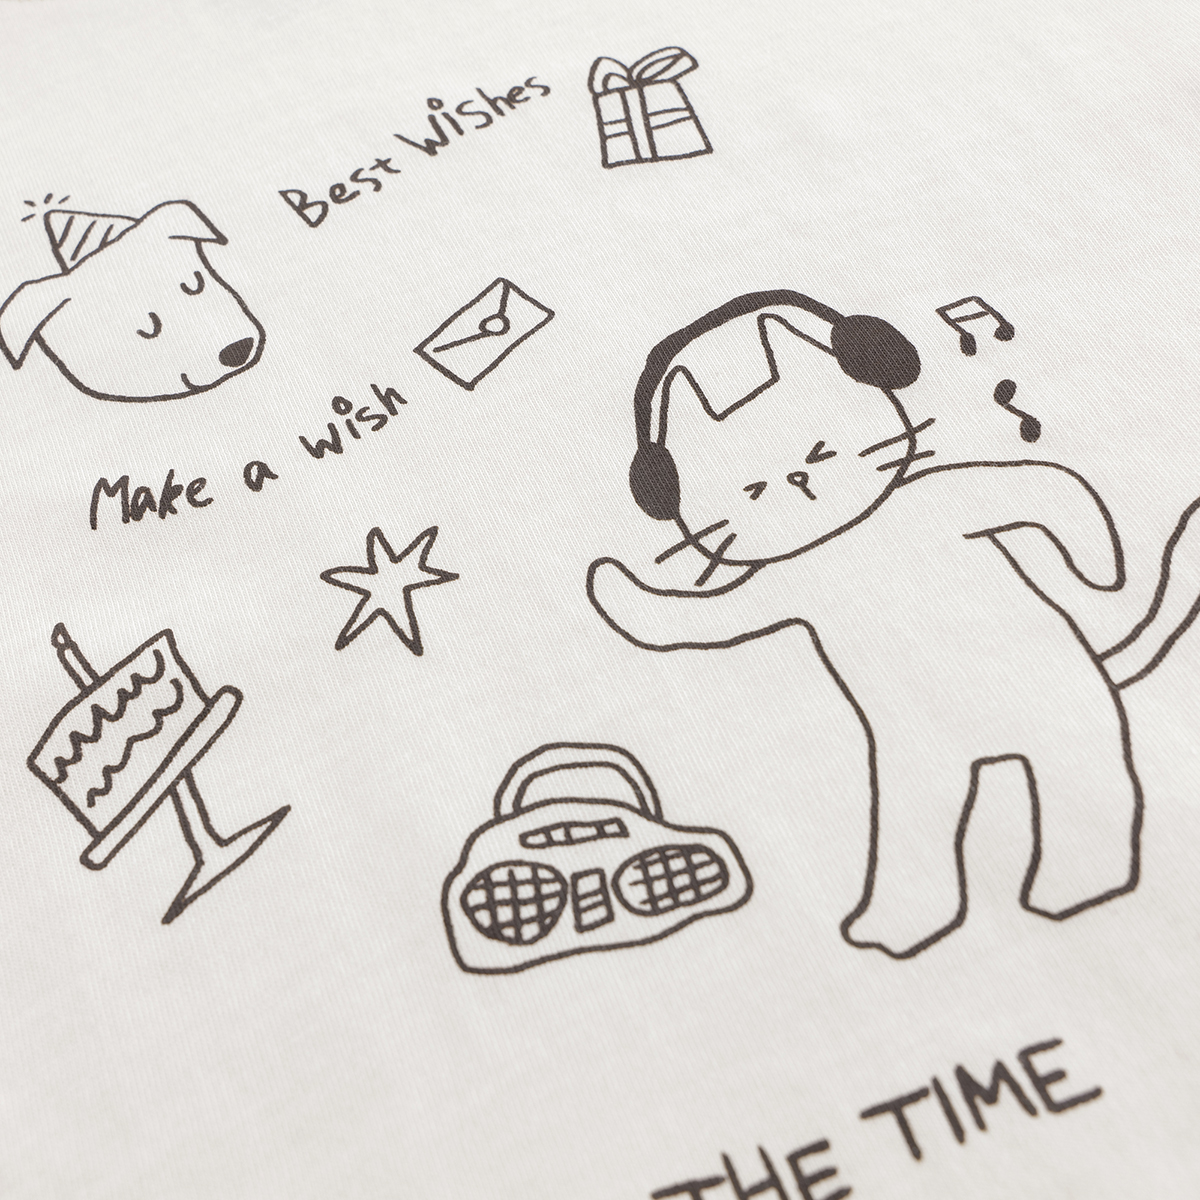 Best Wishes
Make a wish
THE TIME